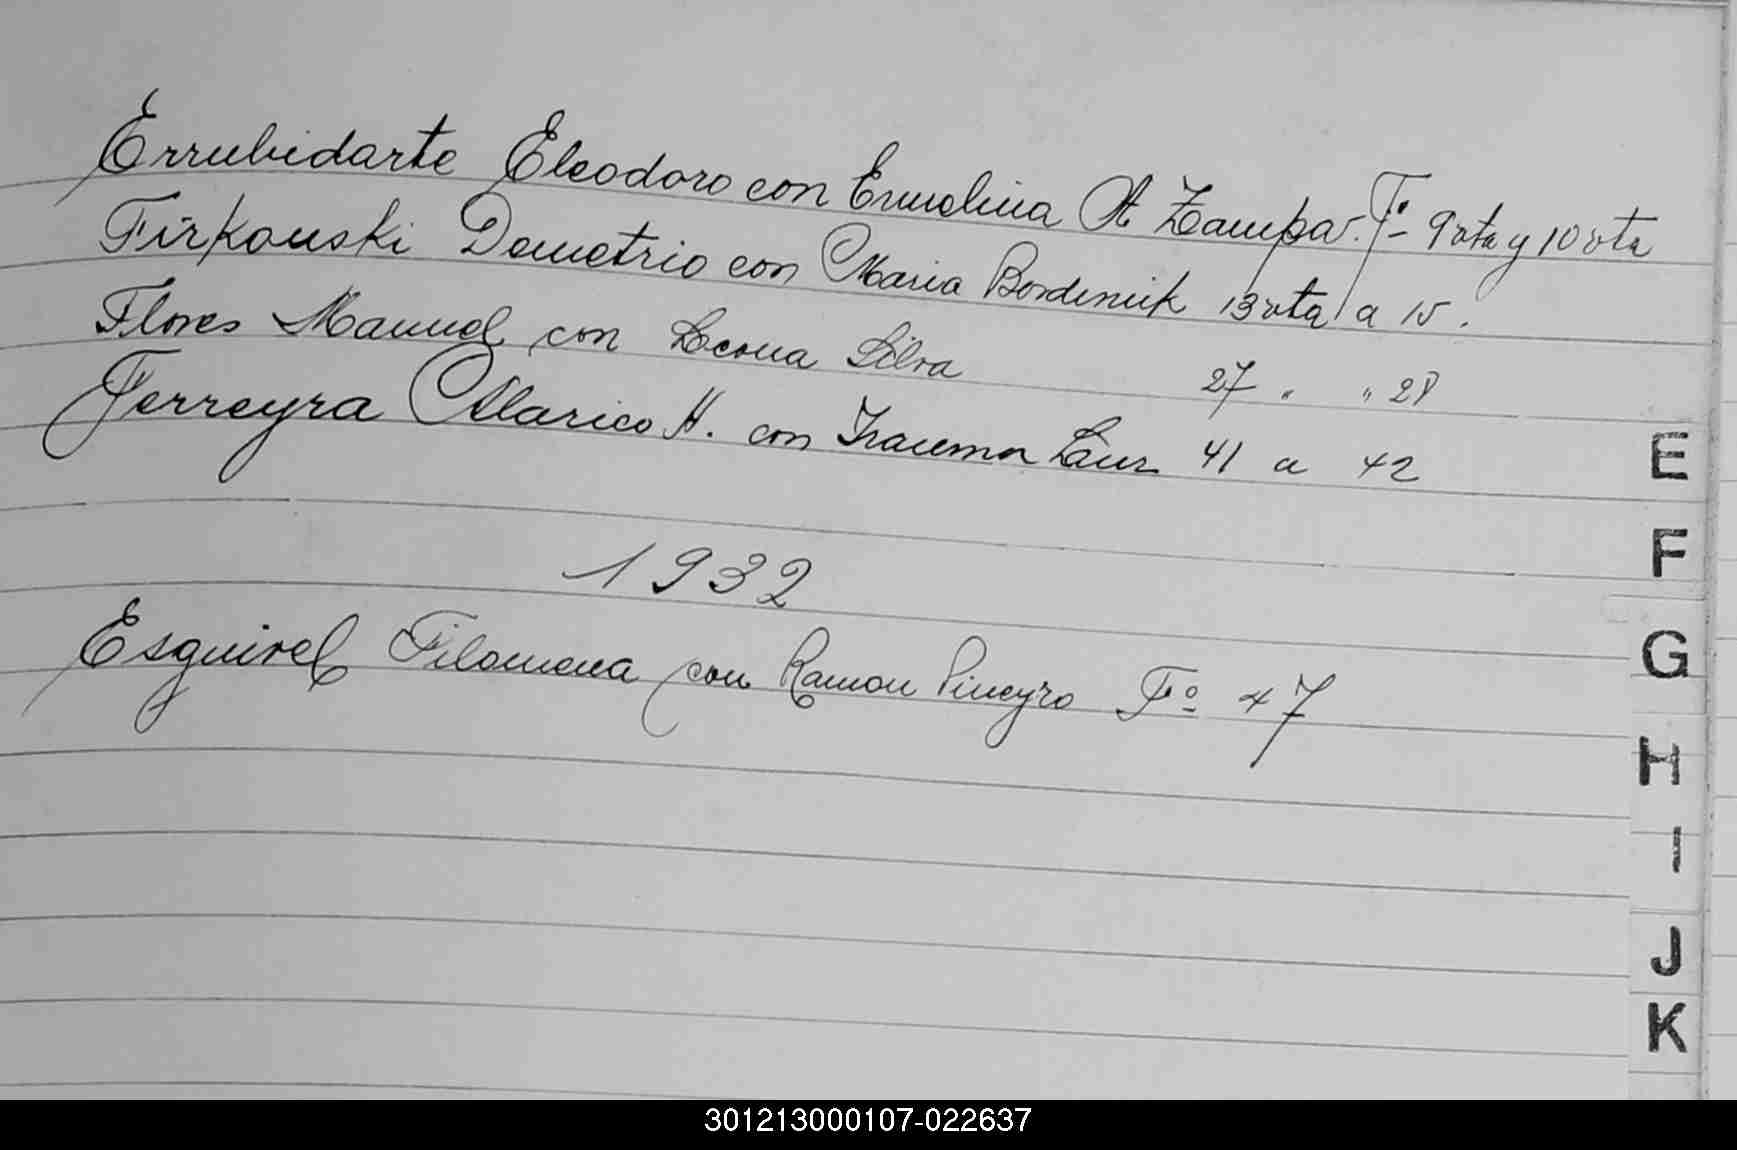 Errubidarte Eleodoro con Ermelina A Zampa. Fº 9 vta y 10 vta
Firkouski Demetrio con Maria Bordeniuk 13 vta a 15.
Flores Manuel con Leona Silva 27 " " 28
Ferreyra Alarico H. con Laur 41 a 42
1932
Esquivel Filomena con Ramon Pineyro Fº 47
E
F
G
H
I
J
K
301213000107-022637